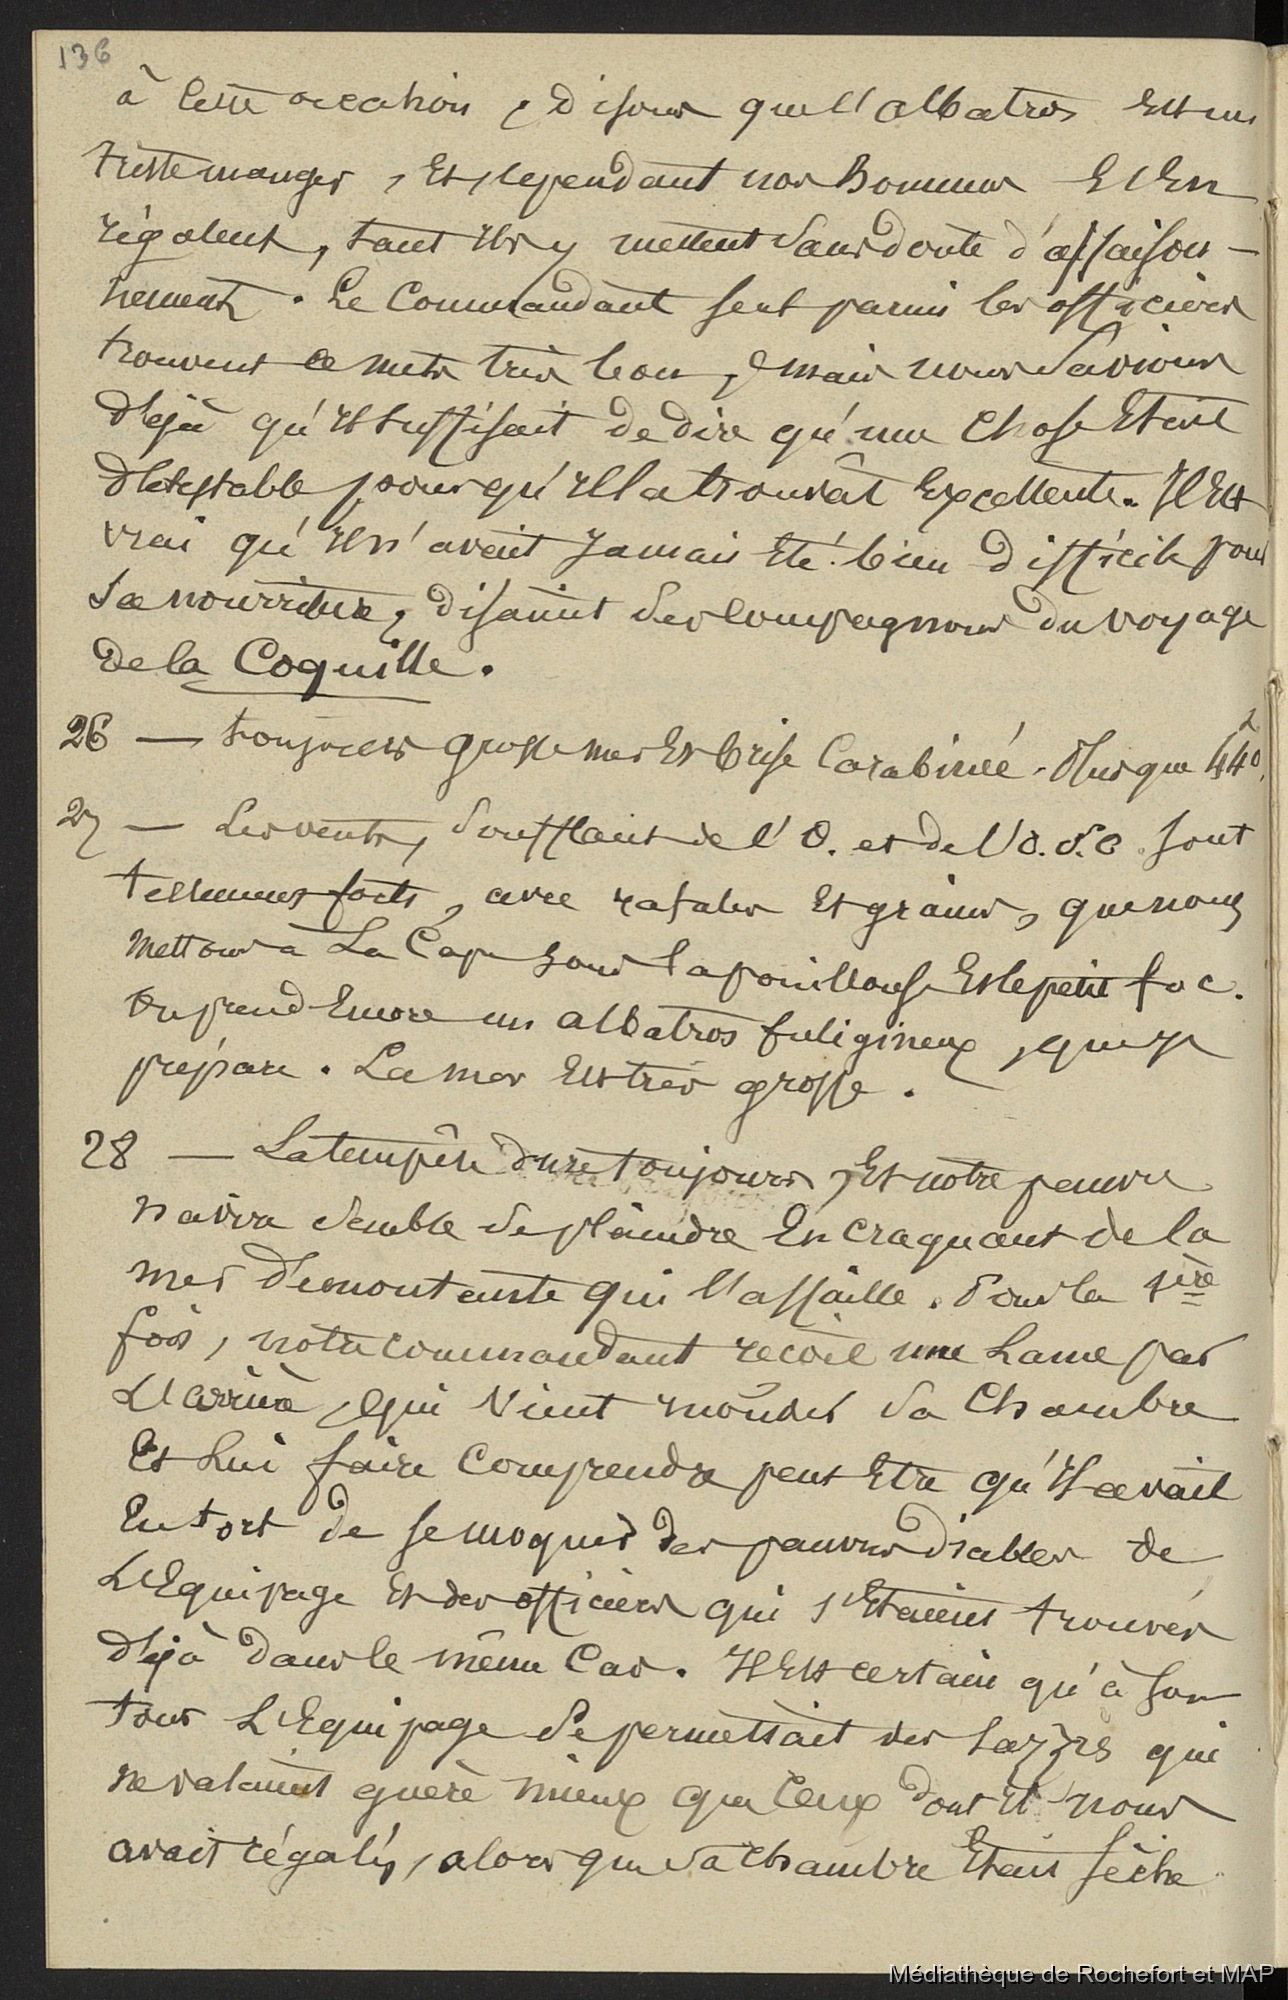 136
à cette occasion, disons que l'albatros est un
triste manger, et cependant nos hommes s'en
régalent, tant ils y mettent sans doute d'assaison-
nement. Le Commandant seul parmi les officiers
trouvent ce mets très bon, mais nous savions
déjà qu'il suffisait de dire qu'une chose était
détestable pour qu'il la trouvât excellente. Il est
vrai qu'il n'avait jamais été bien difficile pour
sa nourriture, disaient ses compagnons du voyage
de la Coquille.
26 — toujours grosse mer et brise carabinée. Plus que 440 l.
27 — Les vents, soufflant de l'O. et de l'O.S.O. sont
tellement forts, avec rafales et grains, que nous
mettons à la cape sous la pouillouse et le petit foc.
On prend encore un albatros fuligineux, que je
prépare. La mer est très grosse.
28 — La tempête dure toujours, et notre pauvre
navire semble se plaindre en craquant de la
mer démontante qui l'assaille. Pour la 1ère
fois, notre commandant reçoit une lame par
l'arrière, qui vient inonder sa chambre
et lui faire comprendre peut être qu'il avait
eu tort de se moquer des pauvres diables de
l'équipage et des officiers qui s'étaient trouvés
déjà dans le même cas. Il est certain qu'à son
tour l'équipage se permettait des lazzis qui
ne valaient guère mieux que ceux dont il nous
avait régalés, alors que sa chambre était sèche
Médiathèque de Rochefort et MAP